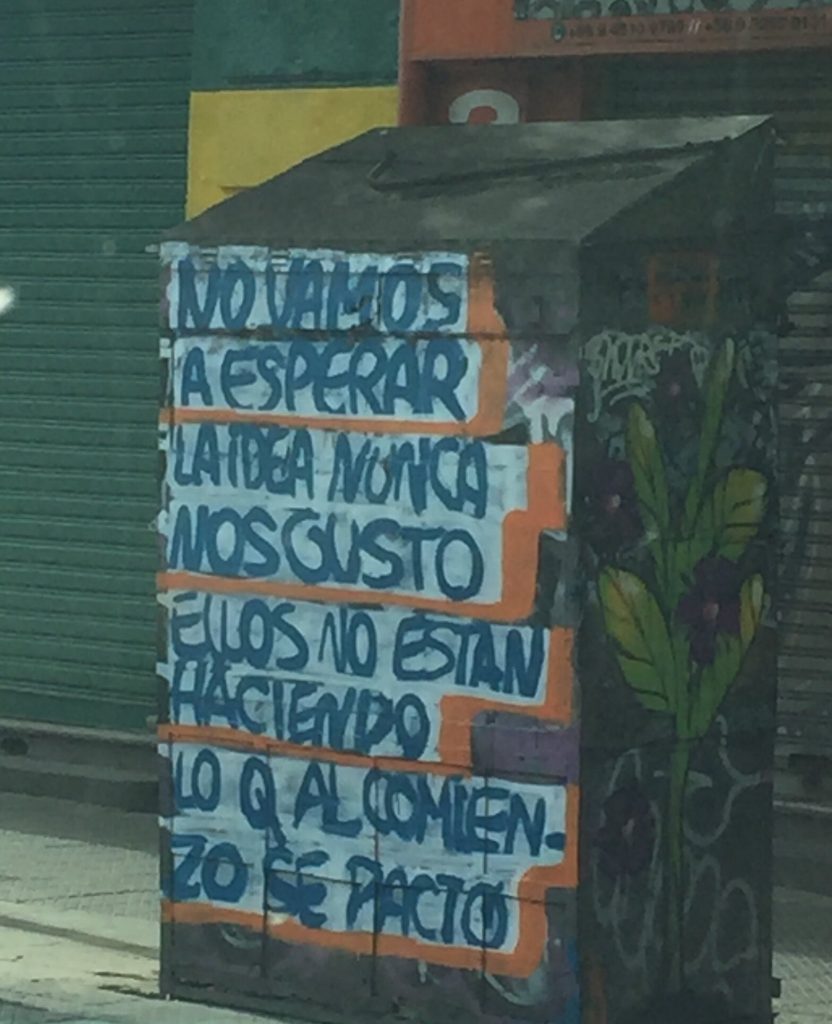 NO VAMOS
A ESPERAR
LA IDEA NUNCA
NOS GUSTO
ELLOS NO ESTAN
HACIENDO
LO Q AL COMIEN-
ZO SE PACTO